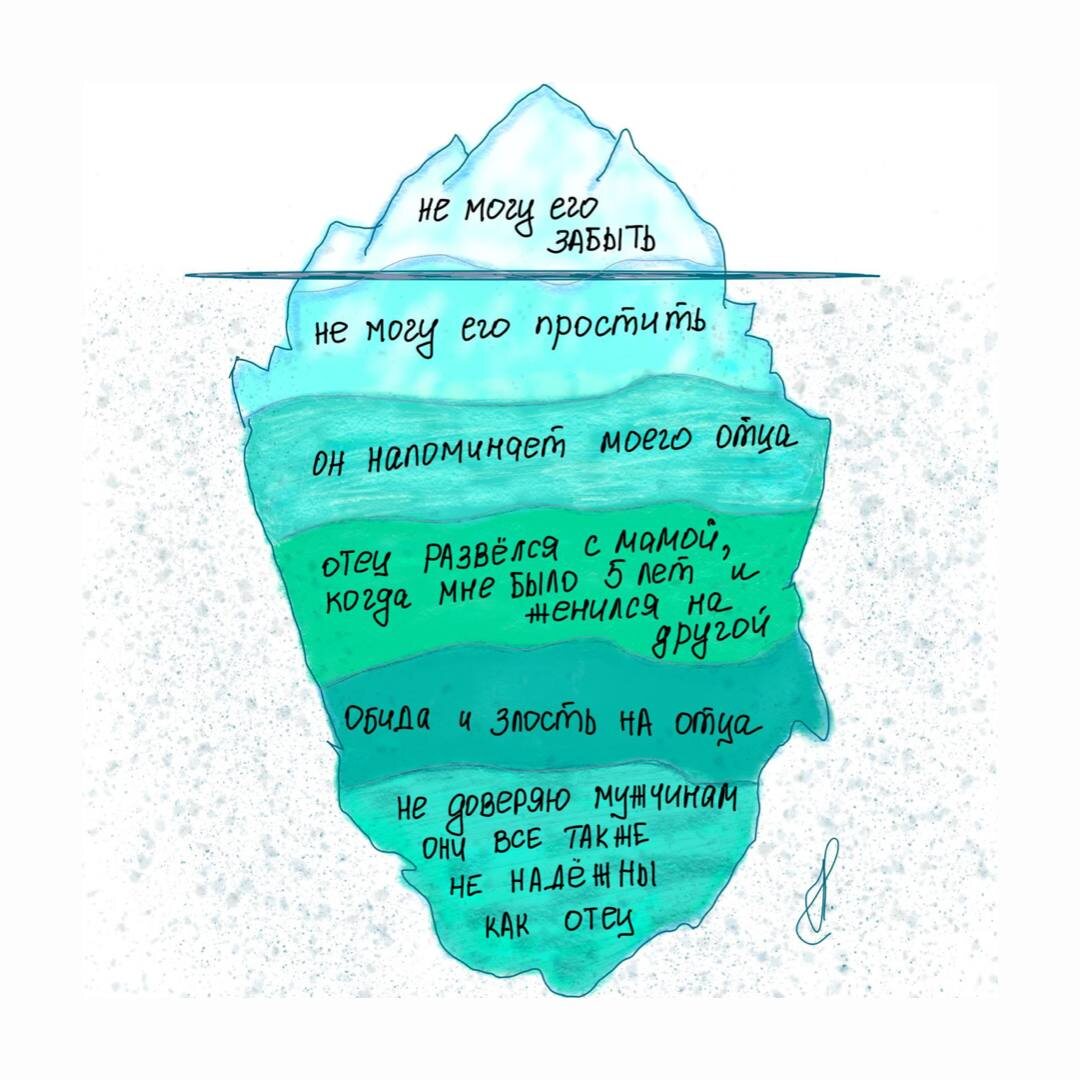 не могу его
ЗАБЫТЬ
не могу его простить
он напоминает моего отца
отец РАЗВЁЛСЯ с мамой,
когда мне было 5 лет и
женился на
другой
Обида и злость на отца
не доверяю мужчинам
они все также
не надёжны
как отец